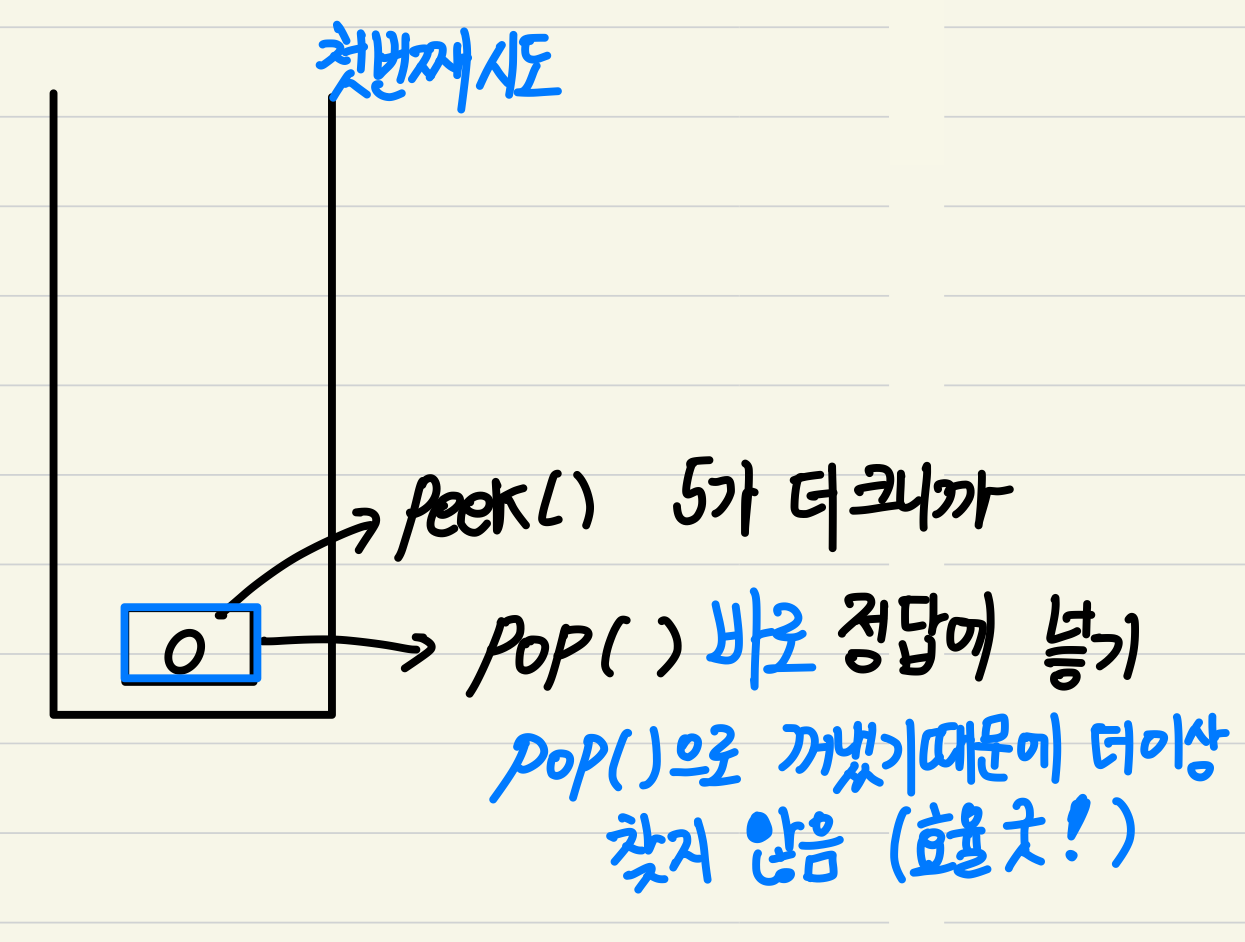 첫번째 시도
peek() 5가 더 크니까
0
pop() 바로 정답에 넣기
pop()으로 꺼냈기때문에 더이상
찾지 않음 (효율 굿!)